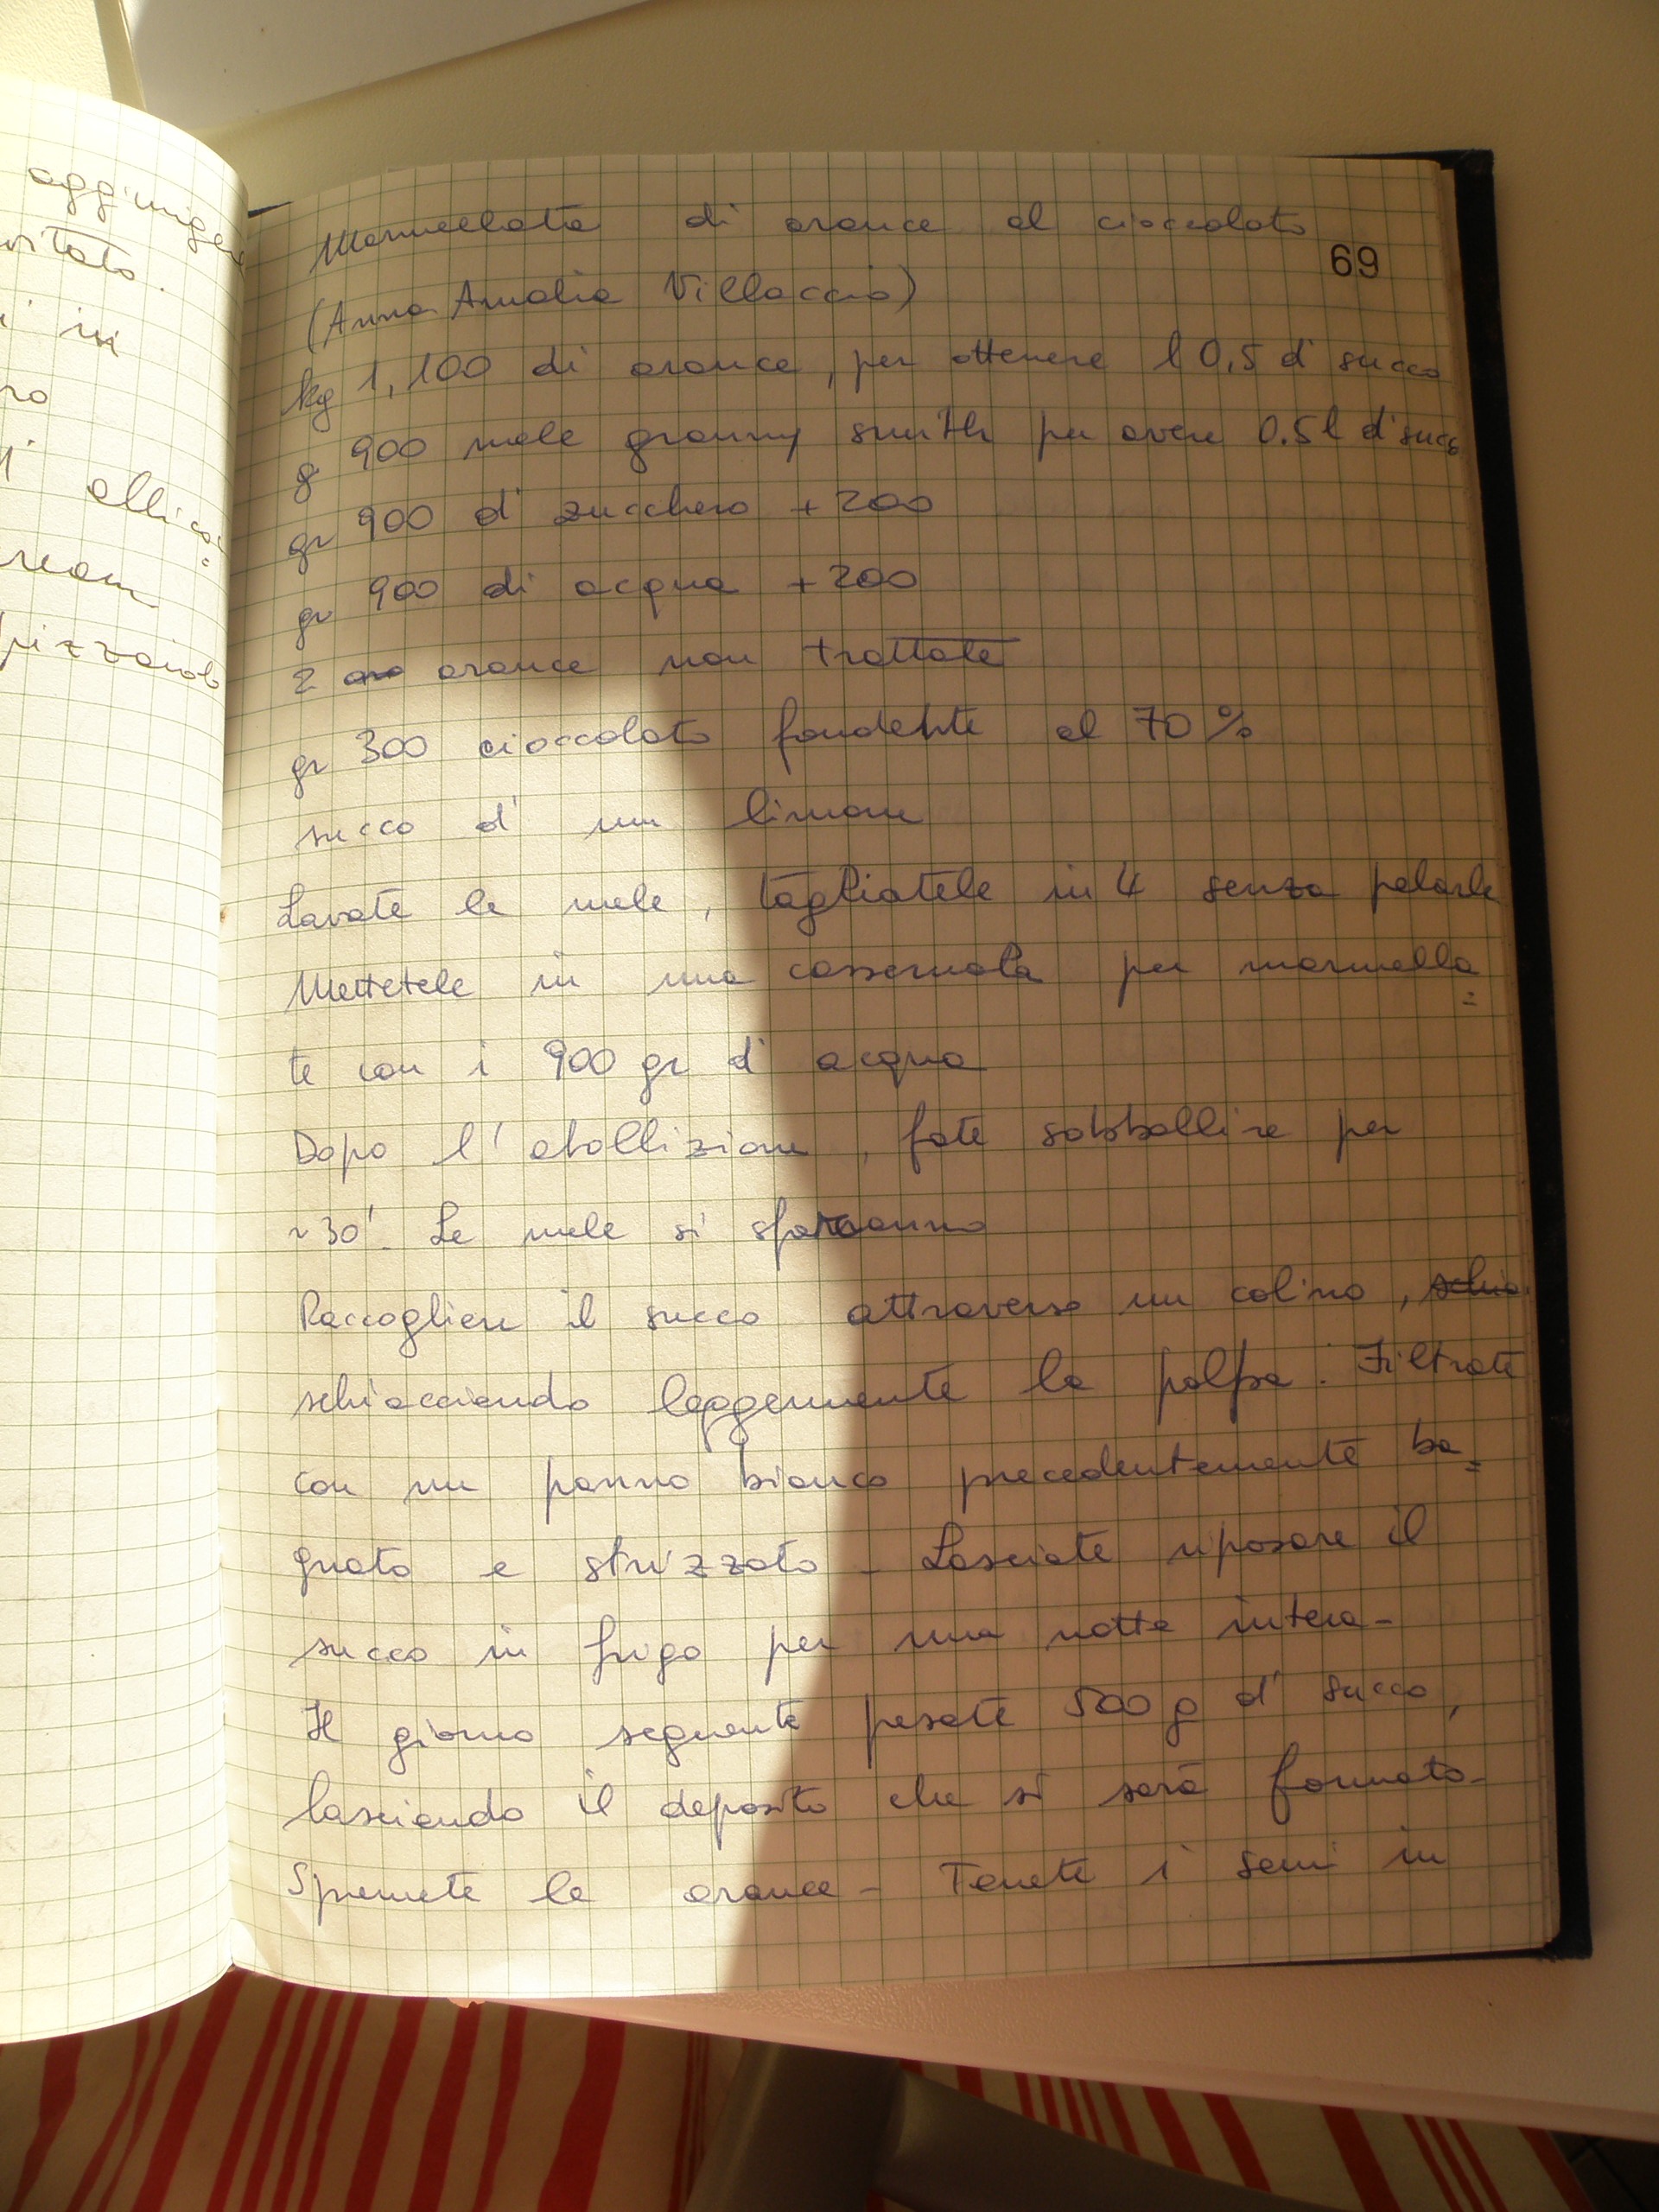 aggiunger
vitato.
i in
ro
ream
pizzaiolo
Marmellata di arance al cioccolato
69
(Anna Amalia Villaccio)
kg 1,100 di arance, per ottenere l 0,5 di succo
g 900 mele granny smith per avere 0.5 l di succo
gr 900 di zucchero + 200
gr 900 di acqua + 200
2 arance non trattate
gr 300 cioccolato fondente al 70%
succo di un limone
Lavate le mele, tagliatele in 4 senza pelarle
Mettetele in una casseruola per marmella=
te con i 900 gr di acqua
Dopo l'ebollizione, fate sobbollire per
~30'. Le mele si sfaranno
Raccogliere il succo attraverso un colino, schia
schiacciando leggermente la polpa. Filtrate
con un panno bianco precedentemente ba=
gnato e strizzato - Lasciate riposare il
succo in frigo per una notte intera -
Il giorno seguente pesate 500 g di succo,
lasciando il deposito che si sarà formato -
Spremete le arance - Tenete i semi in